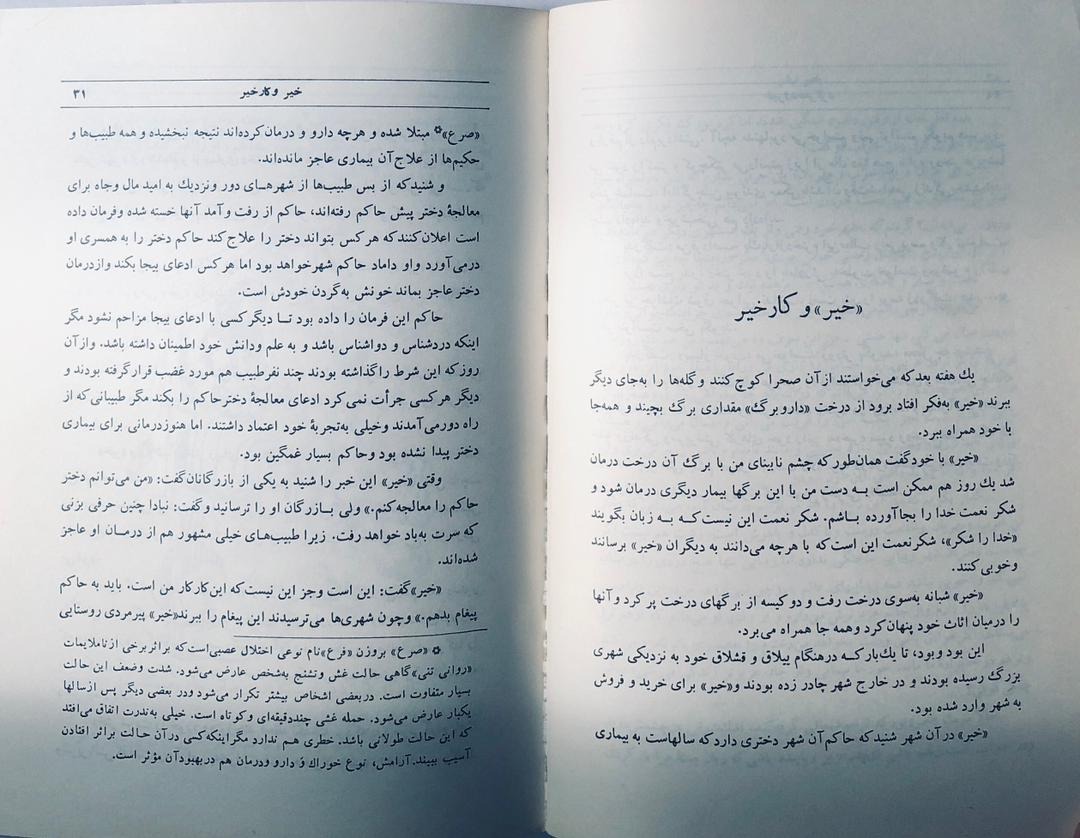 «خیر» و کار خیر
یك هفته بعد که می‌خواستند از آن صحرا کوچ کنند و گله‌ها را به‌جای دیگر
ببرند «خیر» به‌فکر افتاد برود از درخت «داروبرگ» مقداری برگ بچیند و همه‌جا
با خود همراه ببرد.
«خیر» با خودگفت همان‌طور که چشم نابینای من با برگ آن درخت درمان
شد یك روز هم ممکن است به دست من با این برگها بیمار دیگری درمان شود و
شکر نعمت خدا را بجا آورده باشم. شکر نعمت این نیست که به زبان بگویند
«خدا را شکر»، شکر نعمت این است که با هرچه می‌دانند به دیگران «خیر» برسانند
و خوبی کنند.
«خیر» شبانه به‌سوی درخت رفت و دو کیسه از برگهای درخت پر کرد و آنها
را درمیان اثاث خود پنهان کرد و همه جا همراه می‌برد.
این بود و بود، تا یك‌بار که درهنگام ییلاق و قشلاق خود به نزدیکی شهری
بزرگ رسیده بودند و در خارج شهر چادر زده بودند و «خیر» برای خرید و فروش
به شهر وارد شده بود.
«خیر» در آن شهر شنید که حاکم آن شهر دختری دارد که سالهاست به بیماری
خیر و کار خیر ۳۱
«صرع»* مبتلا شده و هرچه دارو و درمان کرده‌اند نتیجه نبخشیده و همه طبیب‌ها و
حکیم‌ها از علاج آن بیماری عاجز مانده‌اند.
و شنید که از بس طبیب‌ها از شهرهای دور و نزدیك به امید مال و جاه برای
معالجهٔ دختر پیش حاکم رفته‌اند، حاکم از رفت و آمد آنها خسته شده و فرمان داده
است اعلان کنند که هر کس بتواند دختر را علاج کند حاکم دختر را به همسری او
درمی‌آورد و او داماد حاکم شهر خواهد بود اما هر کس ادعای بیجا بکند و از درمان
دختر عاجز بماند خونش به گردن خودش است.
حاکم این فرمان را داده بود تا دیگر کسی با ادعای بیجا مزاحم نشود مگر
اینکه دردشناس و دواشناس باشد و به علم و دانش خود اطمینان داشته باشد. و از آن
روز که این شرط را گذاشته بودند چند نفر طبیب هم مورد غضب قرار گرفته بودند و
دیگر هر کسی جرأت نمی‌کرد ادعای معالجهٔ دختر حاکم را بکند مگر طبیبانی که از
راه دور می‌آمدند و خیلی به تجربهٔ خود اعتماد داشتند. اما هنوز درمانی برای بیماری
دختر پیدا نشده بود و حاکم بسیار غمگین بود.
وقتی «خیر» این خبر را شنید به یکی از بازرگانان گفت: «من می‌توانم دختر
حاکم را معالجه کنم.» ولی بازرگان او را ترسانید و گفت: نبادا چنین حرفی بزنی
که سرت به‌باد خواهد رفت. زیرا طبیب‌های خیلی مشهور هم از درمان او عاجز
شده‌اند.
«خیر» گفت: این است و جز این نیست که این کار کار من است. باید به حاکم
پیغام بدهم.» و چون شهری‌ها می‌ترسیدند این پیغام را ببرند «خیر» پیرمردی روستایی
* «صرع» بروزن «فرع» نام نوعی اختلال عصبی است که براثر برخی از ناملایمات
«روانی تنی» گاهی حالت غش و تشنج به‌شخص عارض می‌شود. شدت وضعف این حالت
بسیار متفاوت است. در بعضی اشخاص بیشتر تکرار می‌شود و در بعضی دیگر پس از سالها
یکبار عارض می‌شود. حمله غشی چند دقیقه‌ای و کوتاه است. خیلی به‌ندرت اتفاق می‌افتد
که این حالت طولانی باشد. خطری هم ندارد مگر اینکه کسی در آن حالت براثر افتادن
آسیب ببیند. آرامش، نوع خوراك و دارو و درمان هم در بهبود آن مؤثر است.